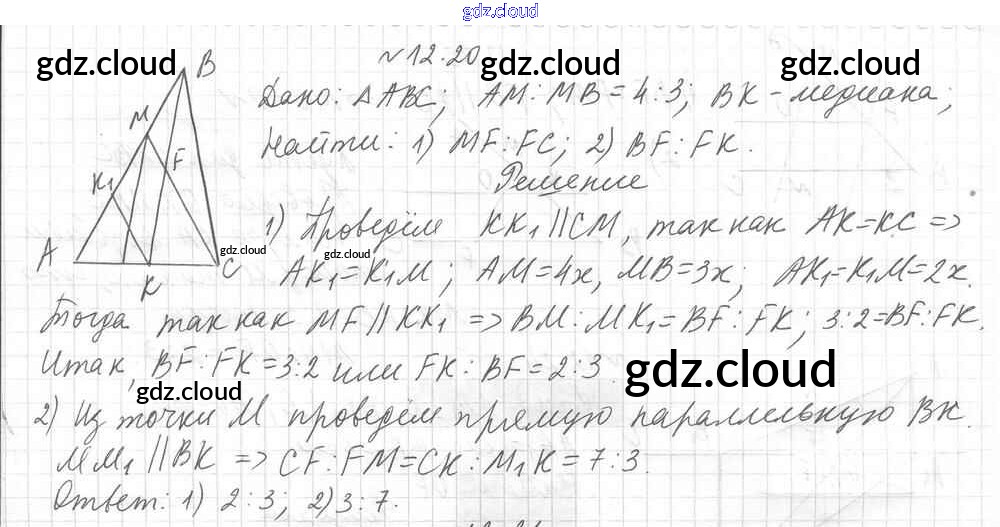 gdz.cloud
№12.20
gdz.cloud gdz.cloud gdz.cloud
B
M
F
K₁
A
K
C
Дано: △ABC; AM:MB=4:3; BK-медиана;
Найти: 1) MF:FC; 2) BF:FK.
Решение
1) Проведём KK₁||CM, так как AK=KC =>
gdz.cloud gdz.cloud
AK₁=K₁M; AM=4x, MB=3x; AK₁=K₁M=2x.
Тогда так как MF||KK₁ => BM:MK₁=BF:FK; 3:2=BF:FK.
Итак, BF:FK=3:2 или FK:BF=2:3.
gdz.cloud gdz.cloud
2) Из точки M проведём прямую параллельную BK.
MM₁||BK => CF:FM=CK:M₁K=7:3.
Ответ: 1) 2:3; 2) 3:7.